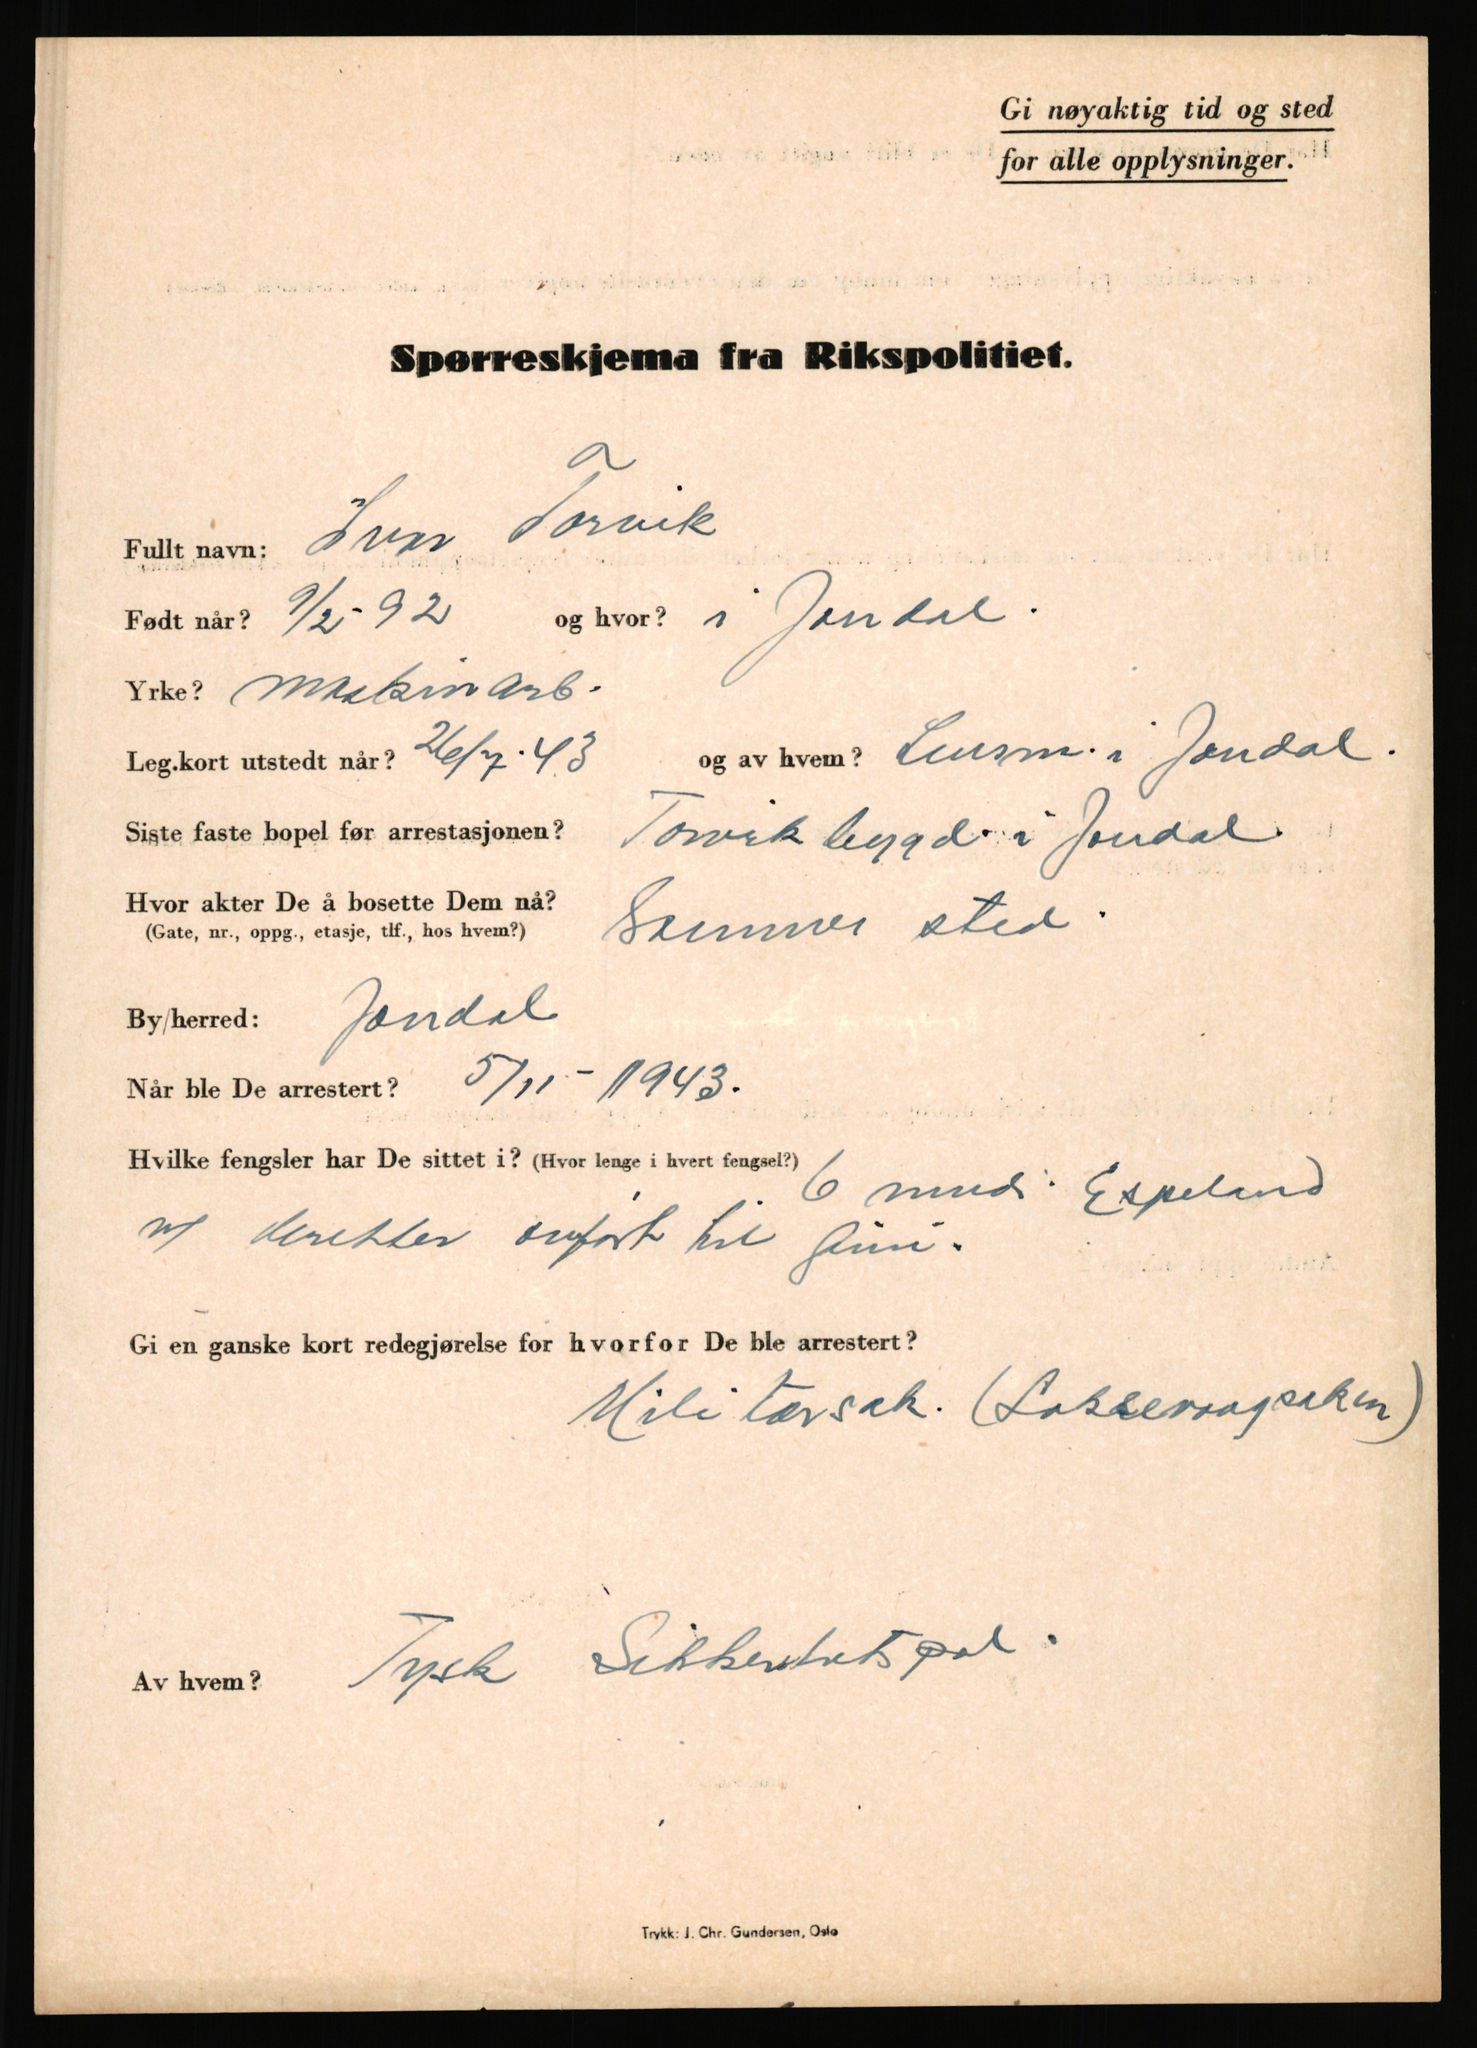 Gi nøyaktig tid og sted
for alle opplysninger.
Spørreskjema fra Rikspolitiet.
Fullt navn: Ivar Torvik
Født når? 9/2-92 og hvor? i Jondal.
Yrke? maskinarb.
Leg.kort utstedt når? 26/7.43 og av hvem? Lensm. i Jondal.
Siste faste bopel før arrestasjonen? Torvikbygd i Jondal.
Hvor akter De å bosette Dem nå? Sammen sted.
(Gate, nr., oppg., etasje, tlf., hos hvem?)
By/herred: Jondal
Når ble De arrestert? 5/11-1943.
Hvilke fengsler har De sittet i? (Hvor lenge i hvert fengsel?) 6 mnd. Espeland
deretter ovført til Grini.
Gi en ganske kort redegjørelse for hvorfor De ble arrestert?
Militærsak. (Laksevaagsaken)
Av hvem? Tysk Sikkerhetspol.
Trykk: J. Chr. Gundersen, Oslo